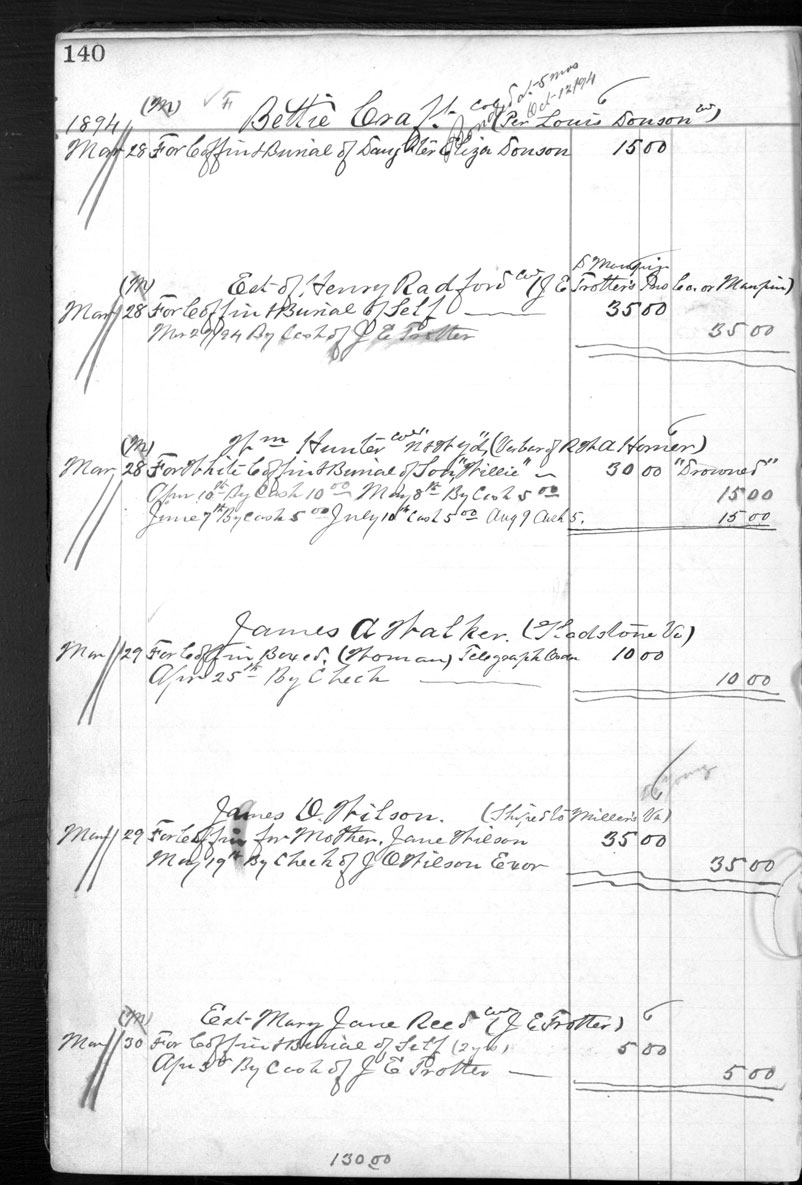 140
(M) Bettie Craft col (Per Louis Donson col)
Oct-12/94
1894
Mar 28 For Coffin & Burial of Daughter Eliza Donson 15 00
(M) Est of Henry Radford col (J E Trotter's Ins Co. or Maupin)
Mar 28 For Coffin & Burial of Self 35 00
Mar 29/94 By Cash of J E Trotter 35 00
(M) Wm Hunter col (Barber of R H A Horner)
Mar 28 For White Coffin & Burial of Son "Willie" 30 00 "Drowned"
Apr 10th By Cash 10 00 May 8th By Cash 5 00 15 00
June 7th By Cash 5 00 July 10th Cash 5 00 Aug 9 Cash 5. 15 00
James A Walker. (Gladstone Va)
Mar 29 For Coffin Boxed. (Woman) Telegraph Order 10 00
Apr 25th By Check 10 00
James O. Wilson. (Shiped to Millers Va)
Mar 29 For Coffin for Mother. Jane Wilson 35 00
May 19th By Check of J O Wilson Exor 35 00
(M) Est Mary Jane Reed col (J E Trotter)
Mar 30 For Coffin & Burial of Self (2 yrs) 5 00
Apr 3d By Cash of J E Trotter 5 00
130 00